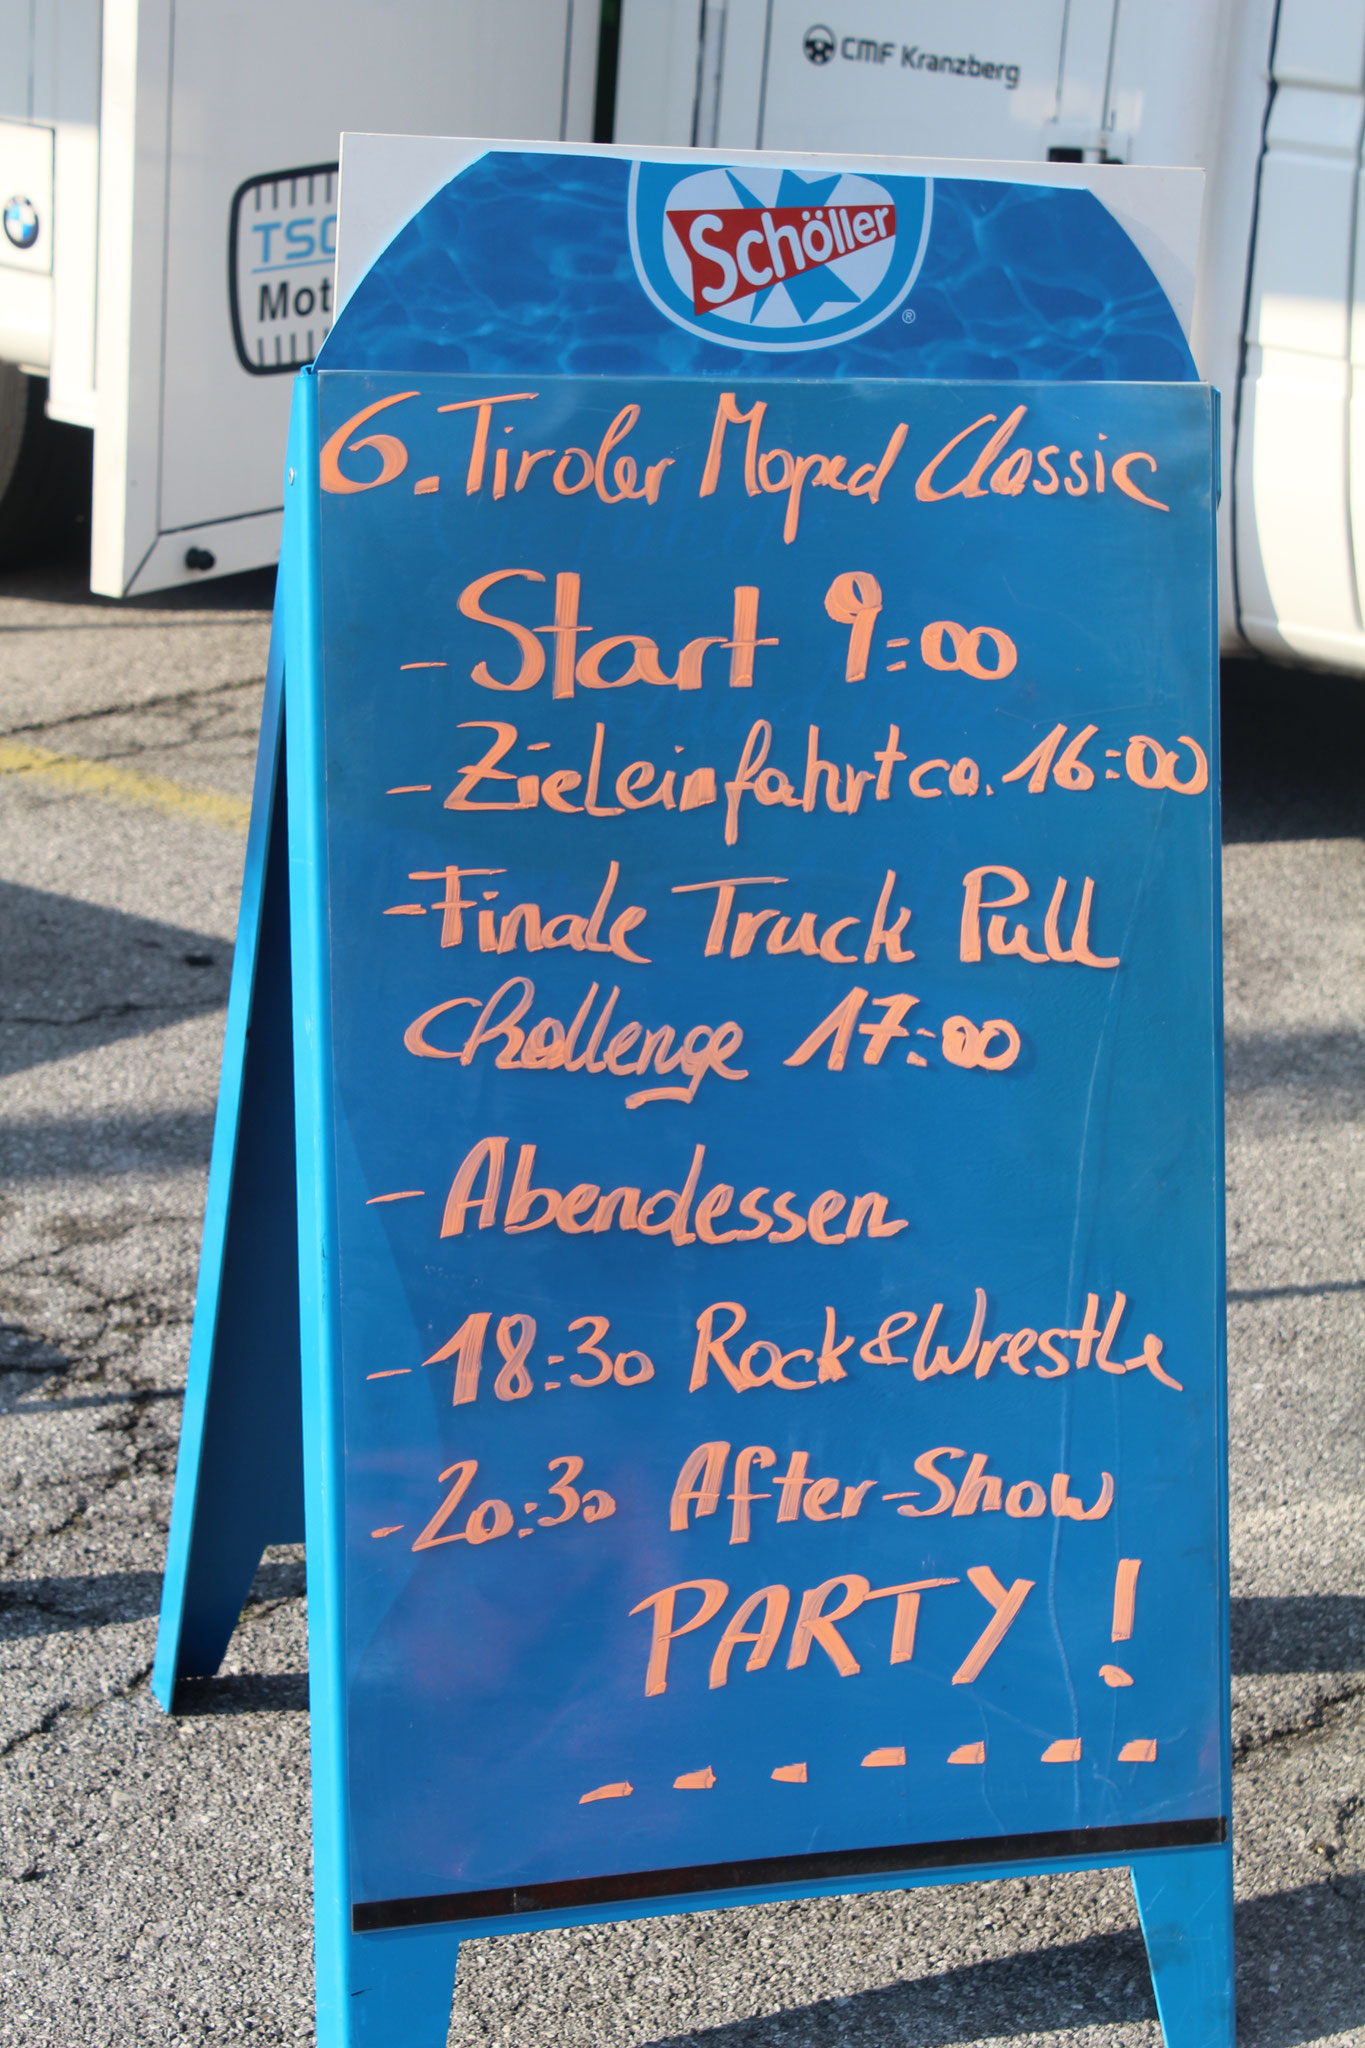 CMF Kranzberg
TSC
Mot
Schöller
®
6. Tiroler Moped Classic
- Start 9:00
- Zieleinfahrt ca. 16:00
- Finale Truck Pull
Challenge 17:00
- Abendessen
- 18:30 Rock & Wrestle
- 20:30 After-Show
PARTY !